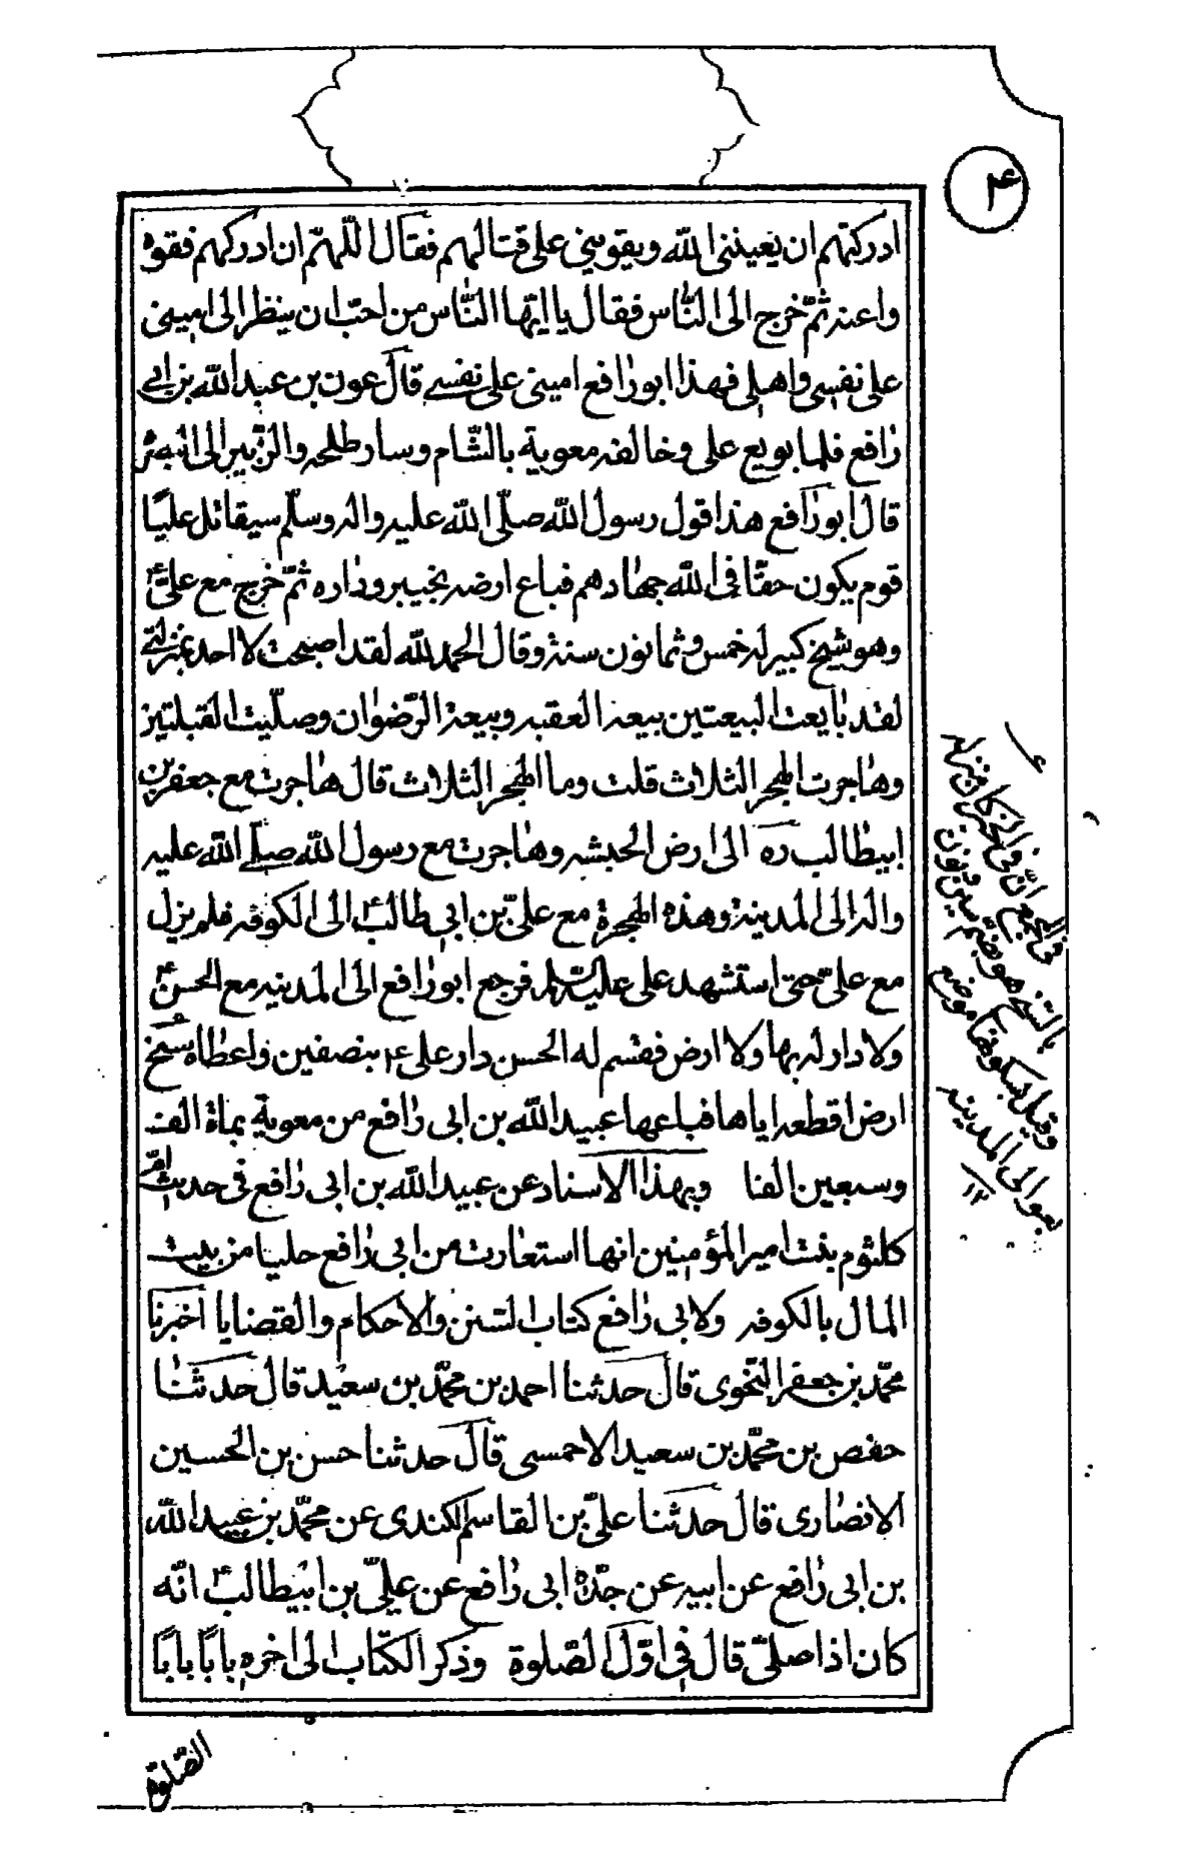 ۴
ادركتهم ان يعينني الله ويقويني على قتالهم فقال اللّهمّ ان ادركهم فقوه
واعنه ثمّ خرج الى النّاس فقال يا ايّها النّاس من احبّ ان ينظر الى اميني
على نفسي واهلى فهذا ابو رافع اميني على نفسے قال عون بن عبد الله بن ابے
رافع فلما بويع على وخالفه معوية بالشّام وسار طلحه والزّبير الى البصرة
قال ابو رافع هذا قول رسول الله صلّى الله عليه واله وسلّم سيقاتل عليّا
قوم يكون حقّا فى الله جهادهم فباع ارضه بخيبر وداره ثمّ خرج مع علىّ ع
وهو شيخ كبير له خمس وثمانون سنة وقال الحمد لله لقد اصبحت لا احد بمنزلتے
لقد بايعت البيعتين بيعة العقبه وبيعة الرّضوان وصلّيت القبلتين
وهاجرت الهجر الثلاث قلت وما الهجر الثلاث قال هاجرت مع جعفر بن
ابيطالب ره الى ارض الحبشه وهاجرت مع رسول الله صلّے الله عليه
واله الى المدينة وهذه الهجرة مع علىّ بن ابى طالب ع الى الكوفه فلم يزل
مع علىّ حتى استشهد على عليه السلم فرجع ابو رافع الى المدينه مع الحسن ع
ولا دار له بها ولا ارض فقسم له الحسن دار على ع بنصفين واعطاه سنخ
ارض اقطعه اياها فباعها عبيد الله بن ابى رافع من معوية بماة الف
وسبعين الفا وبهذا الاسناد عن عبيد الله بن ابى رافع فى حديث امّ
كلثوم بنت امير المؤمنين انها استعارت من ابى رافع حليا من بيت
المال بالكوفه ولابى رافع كتاب السّنن والاحكام والقضايا اخبرنا
محمّد بن جعفر النّحوى قال حدثنا احمد بن محمّد بن سعيد قال حدثنا
حفص بن محمّد بن سعيد الاحمسى قال حدثنا حسن بن الحسين
الانصارى قال حدثنا علىّ بن القاسم الكندى عن محمّد بن عبيد الله
بن ابى رافع عن ابيه عن جدّه ابى رافع عن علىّ بن ابيطالب ع انّه
كان اذا صلىّ قال فى اوّل الصّلوة وذكر الكتاب الى اخره بابًا بابًا
الصّلوة
بالسنح هو بضم سين
وقيل بسكونها موضع
بعوالى المدينه
١٢